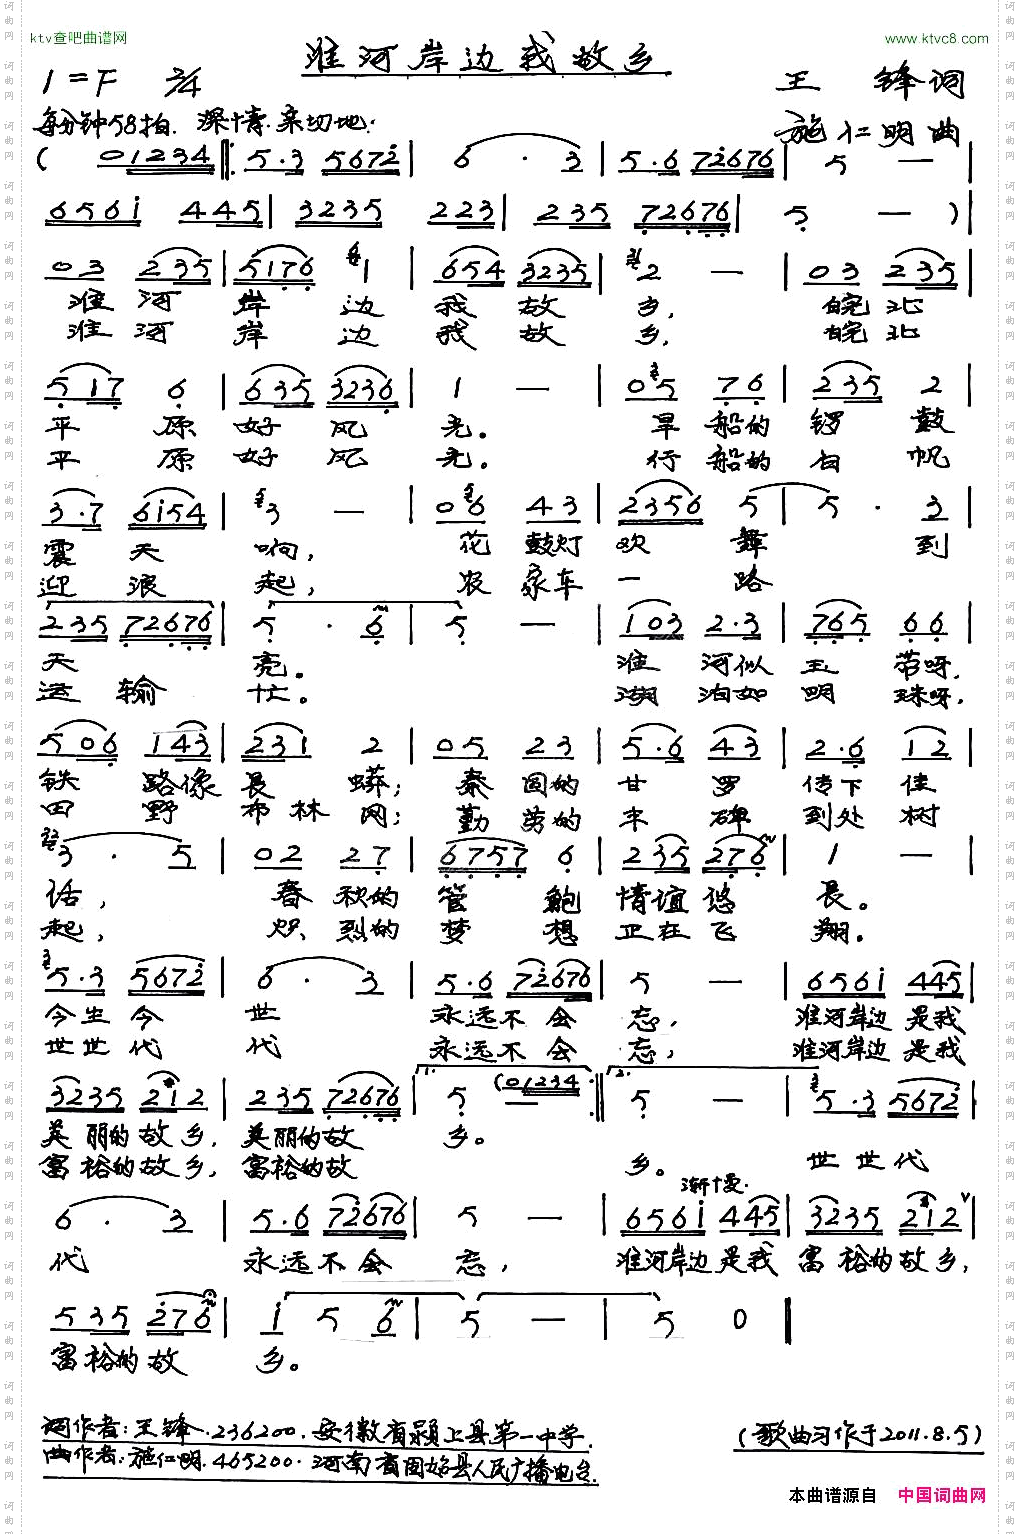 ktv查吧曲谱网
www.ktvc8.com
淮河岸边我故乡
1=F 2/4
王 锋词
每分钟58拍. 深情.亲切地.
施仁明曲
( 01234 5·3 5672 6 · 3 5·6 72676 5 —
6561 445 3235 223 235 72676 5 — )
03 235 5176 1 654 3235 2 — 03 235
淮河岸边我故乡, 皖北
淮河岸边我故乡, 皖北
517 6 635 3236 1 — 05 76 235 2
平原好风光。 旱船的锣鼓
平原好风光。 行船的白帆
3·7 6154 3 — 06 43 2356 5 5 · 3
震天响, 花鼓灯欢舞到
迎浪起, 农家车一路
235 72676 5 · 6 5 — 103 2·3 765 66
天亮。 淮河似玉带呀,
运输忙。 湖泊如明珠呀,
506 143 231 2 05 23 5·6 43 2·6 12
铁路像长蟒; 秦国的甘罗传下佳
田野布林网; 勤劳的丰碑到处树
3 · 5 02 27 6757 6 235 276 1 —
话, 春秋的管鲍情谊悠长。
起, 炽烈的梦想正在飞翔。
5·3 5672 6 · 3 5·6 72676 5 — 6561 445
今生今世永远不会忘, 淮河岸边是我
世世代代永远不会忘, 淮河岸边是我
3235 212 235 72676 1. 5 — (01234 2. 5 — 5·3 5672
美丽的故乡, 美丽的故乡。
富裕的故乡, 富裕的故乡。 世世代
渐慢.
6 · 3 5·6 72676 5 — 6561 445 3235 212
代永远不会忘, 淮河岸边是我富裕的故乡,
535 276 1 5 6 5 — 5 0
富裕的故乡。
词作者:王锋.236200.安徽省颍上县第一中学.
(歌曲习作于2011.8.5)
曲作者:施仁明.465200.河南省固始县人民广播电台.
本曲谱源自 中国词曲网